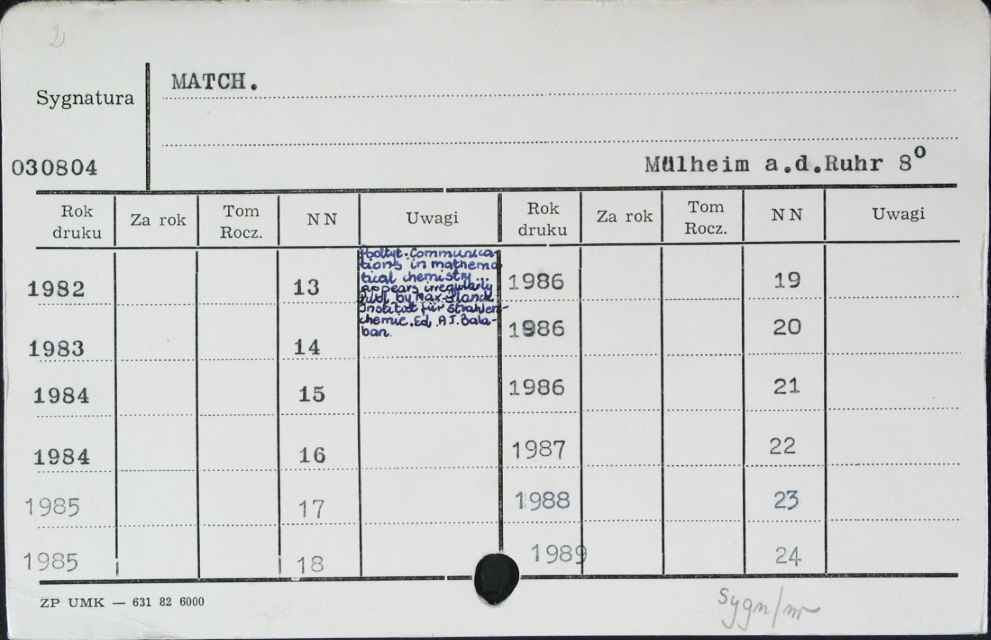 2
MATCH.
Sygnatura
030804
Mülheim a.d.Ruhr 8º
Rok druku Za rok Tom Rocz. NN Uwagi Rok druku Za rok Tom Rocz. NN Uwagi
1982 13 1986 19
Podtyt. Communica-
tions in mathema
tical chemistry...
appears irregularly
Publ. by Max-Planck
Institut für Strahlen-
chemie. Ed. A.T. Bala-
ban.
1983 14 1986 20
1984 15 1986 21
1984 16 1987 22
1985 17 1988 23
1985 18 1989 24
ZP UMK — 631 82 6000
Sygn/nr